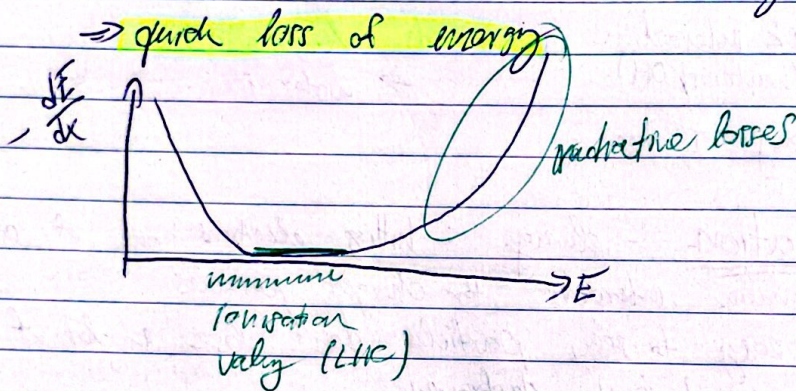 ⇒ quick loss of energy
- dE/dx
radiative losses
E
minimum
ionisation
valley (LHC)